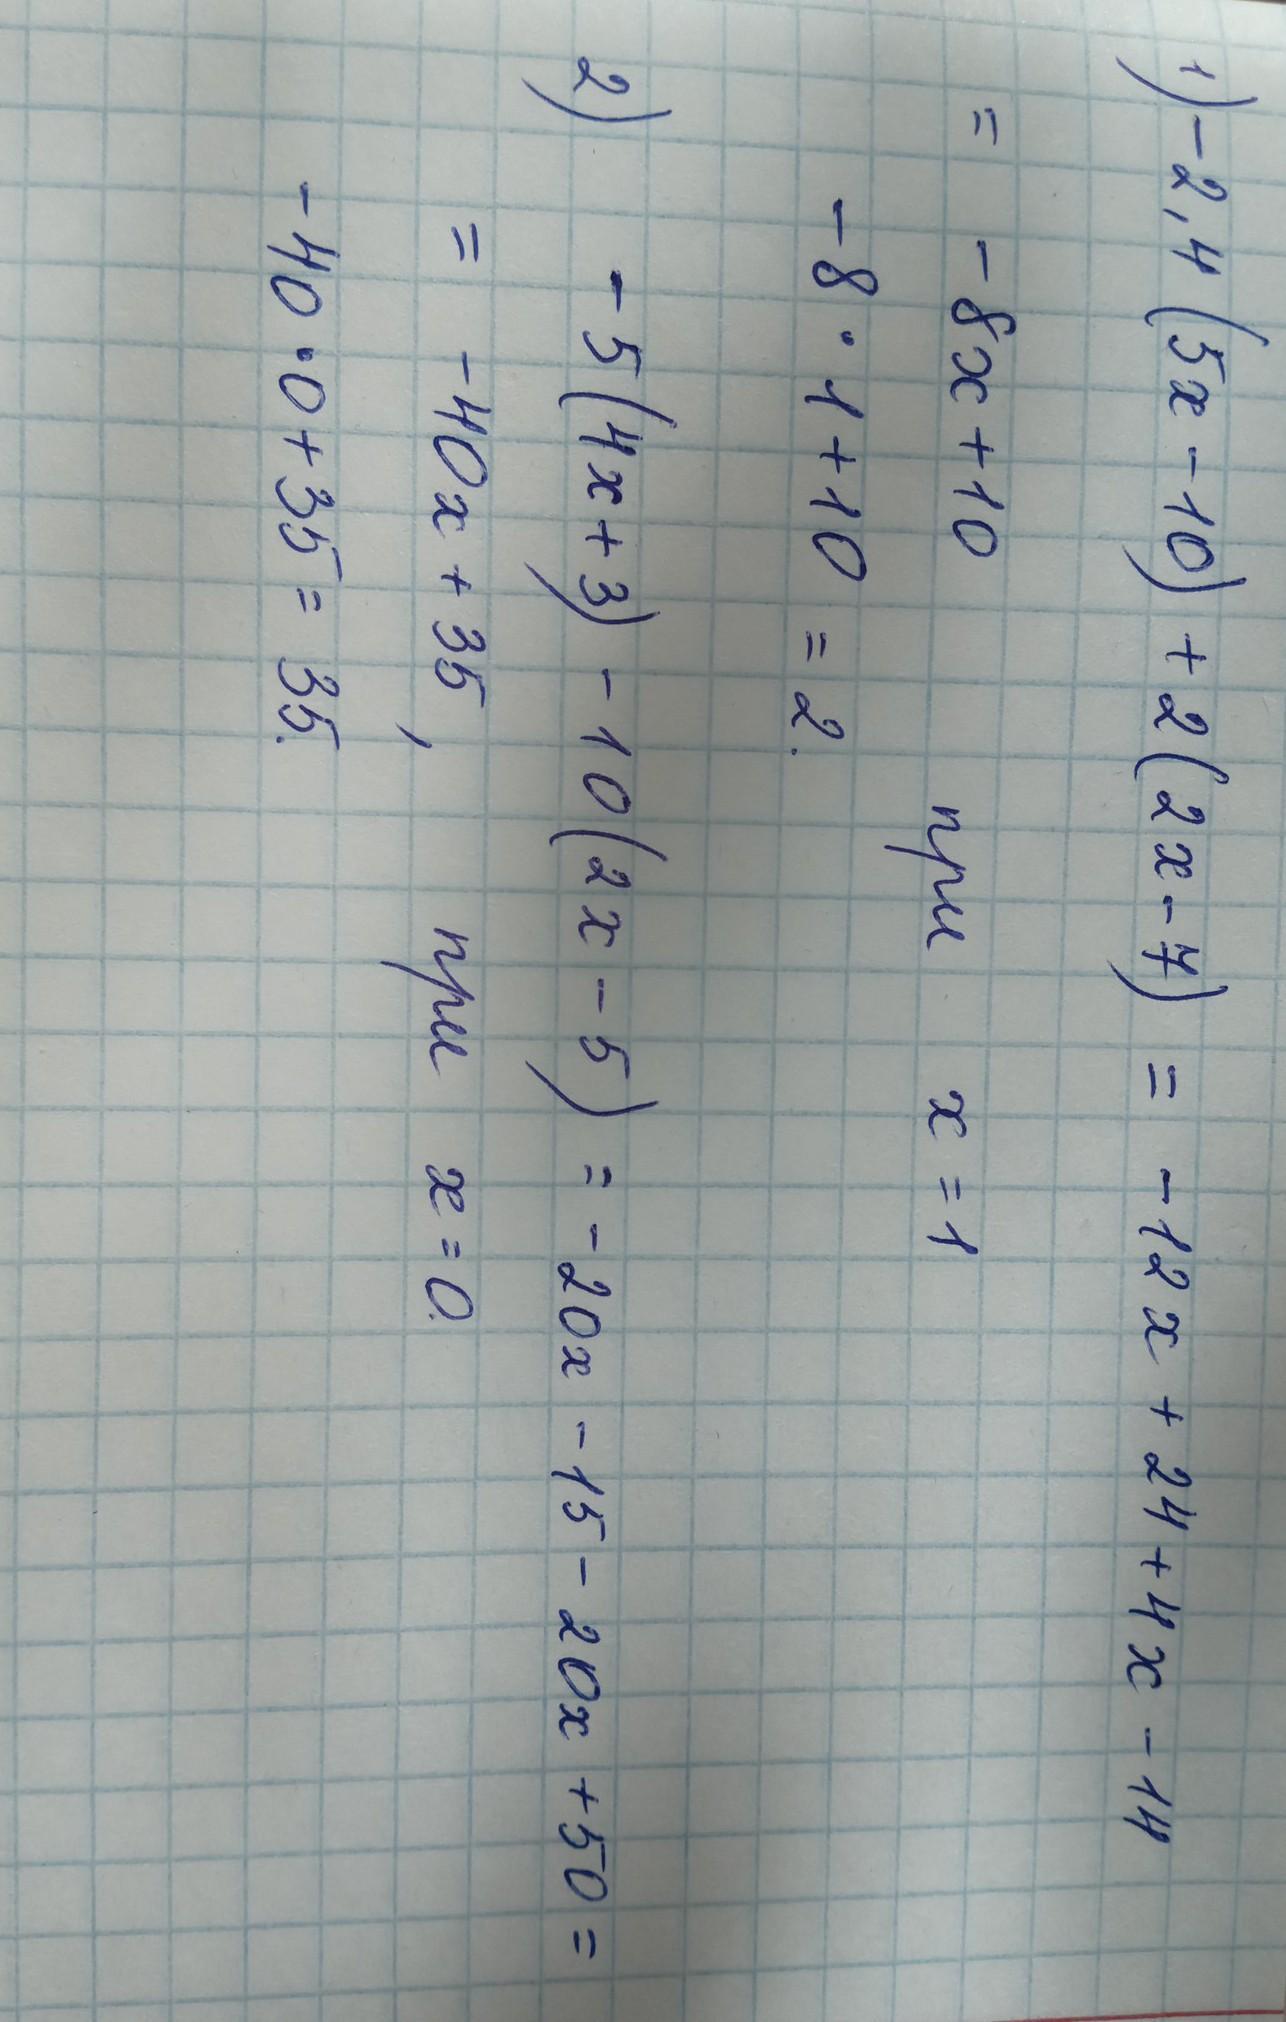 1) -2,4(5x-10)+2(2x-7) = -12x+24+4x-14
= -8x+10 при x=1
-8·1+10=2.
2) -5(4x+3)-10(2x-5) = -20x-15-20x+50=
= -40x+35, при x=0.
-40·0+35=35.